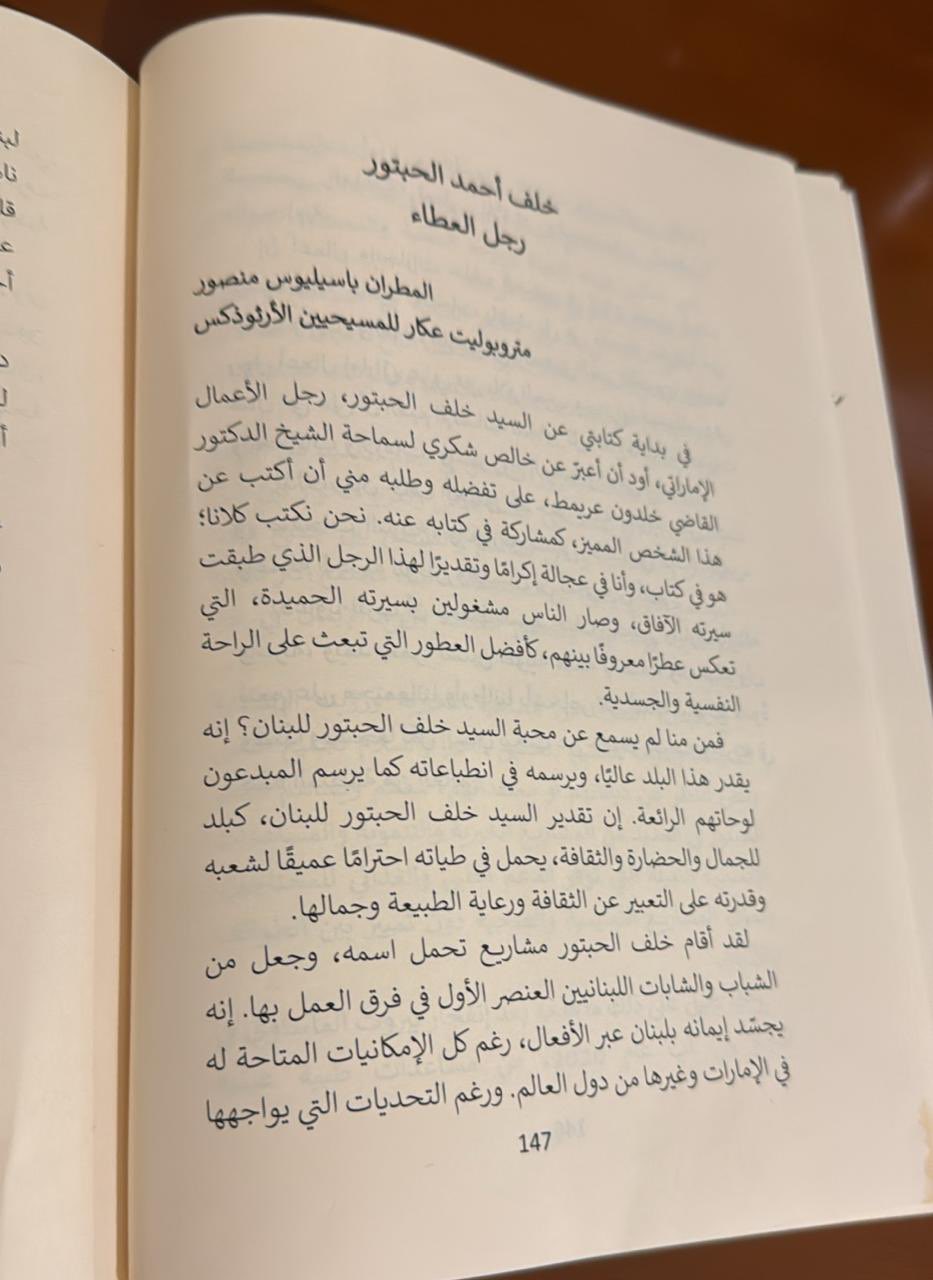 خلف أحمد الحبتور
رجل العطاء
المطران باسيليوس منصور
متروبوليت عكار للمسيحيين الأرثوذكس
في بداية كتابتي عن السيد خلف الحبتور، رجل الأعمال
الإماراتي، أود أن أعبرّ عن خالص شكري لسماحة الشيخ الدكتور
القاضي خلدون عريمط، على تفضله وطلبه مني أن أكتب عن
هذا الشخص المميز، كمشاركة في كتابه عنه. نحن نكتب كلانا؛
هو في كتاب، وأنا في عجالة إكرامًا وتقديرًا لهذا الرجل الذي طبقت
سيرته الآفاق، وصار الناس مشغولين بسيرته الحميدة، التي
تعكس عطرًا معروفًا بينهم، كأفضل العطور التي تبعث على الراحة
النفسية والجسدية.
فمن منا لم يسمع عن محبة السيد خلف الحبتور للبنان؟ إنه
يقدر هذا البلد عاليًا، ويرسمه في انطباعاته كما يرسم المبدعون
لوحاتهم الرائعة. إن تقدير السيد خلف الحبتور للبنان، كبلد
للجمال والحضارة والثقافة، يحمل في طياته احترامًا عميقًا لشعبه
وقدرته على التعبير عن الثقافة ورعاية الطبيعة وجمالها.
لقد أقام خلف الحبتور مشاريع تحمل اسمه، وجعل من
الشباب والشابات اللبنانيين العنصر الأول في فرق العمل بها. إنه
يجسّد إيمانه بلبنان عبر الأفعال، رغم كل الإمكانيات المتاحة له
في الإمارات وغيرها من دول العالم. ورغم التحديات التي يواجهها
147